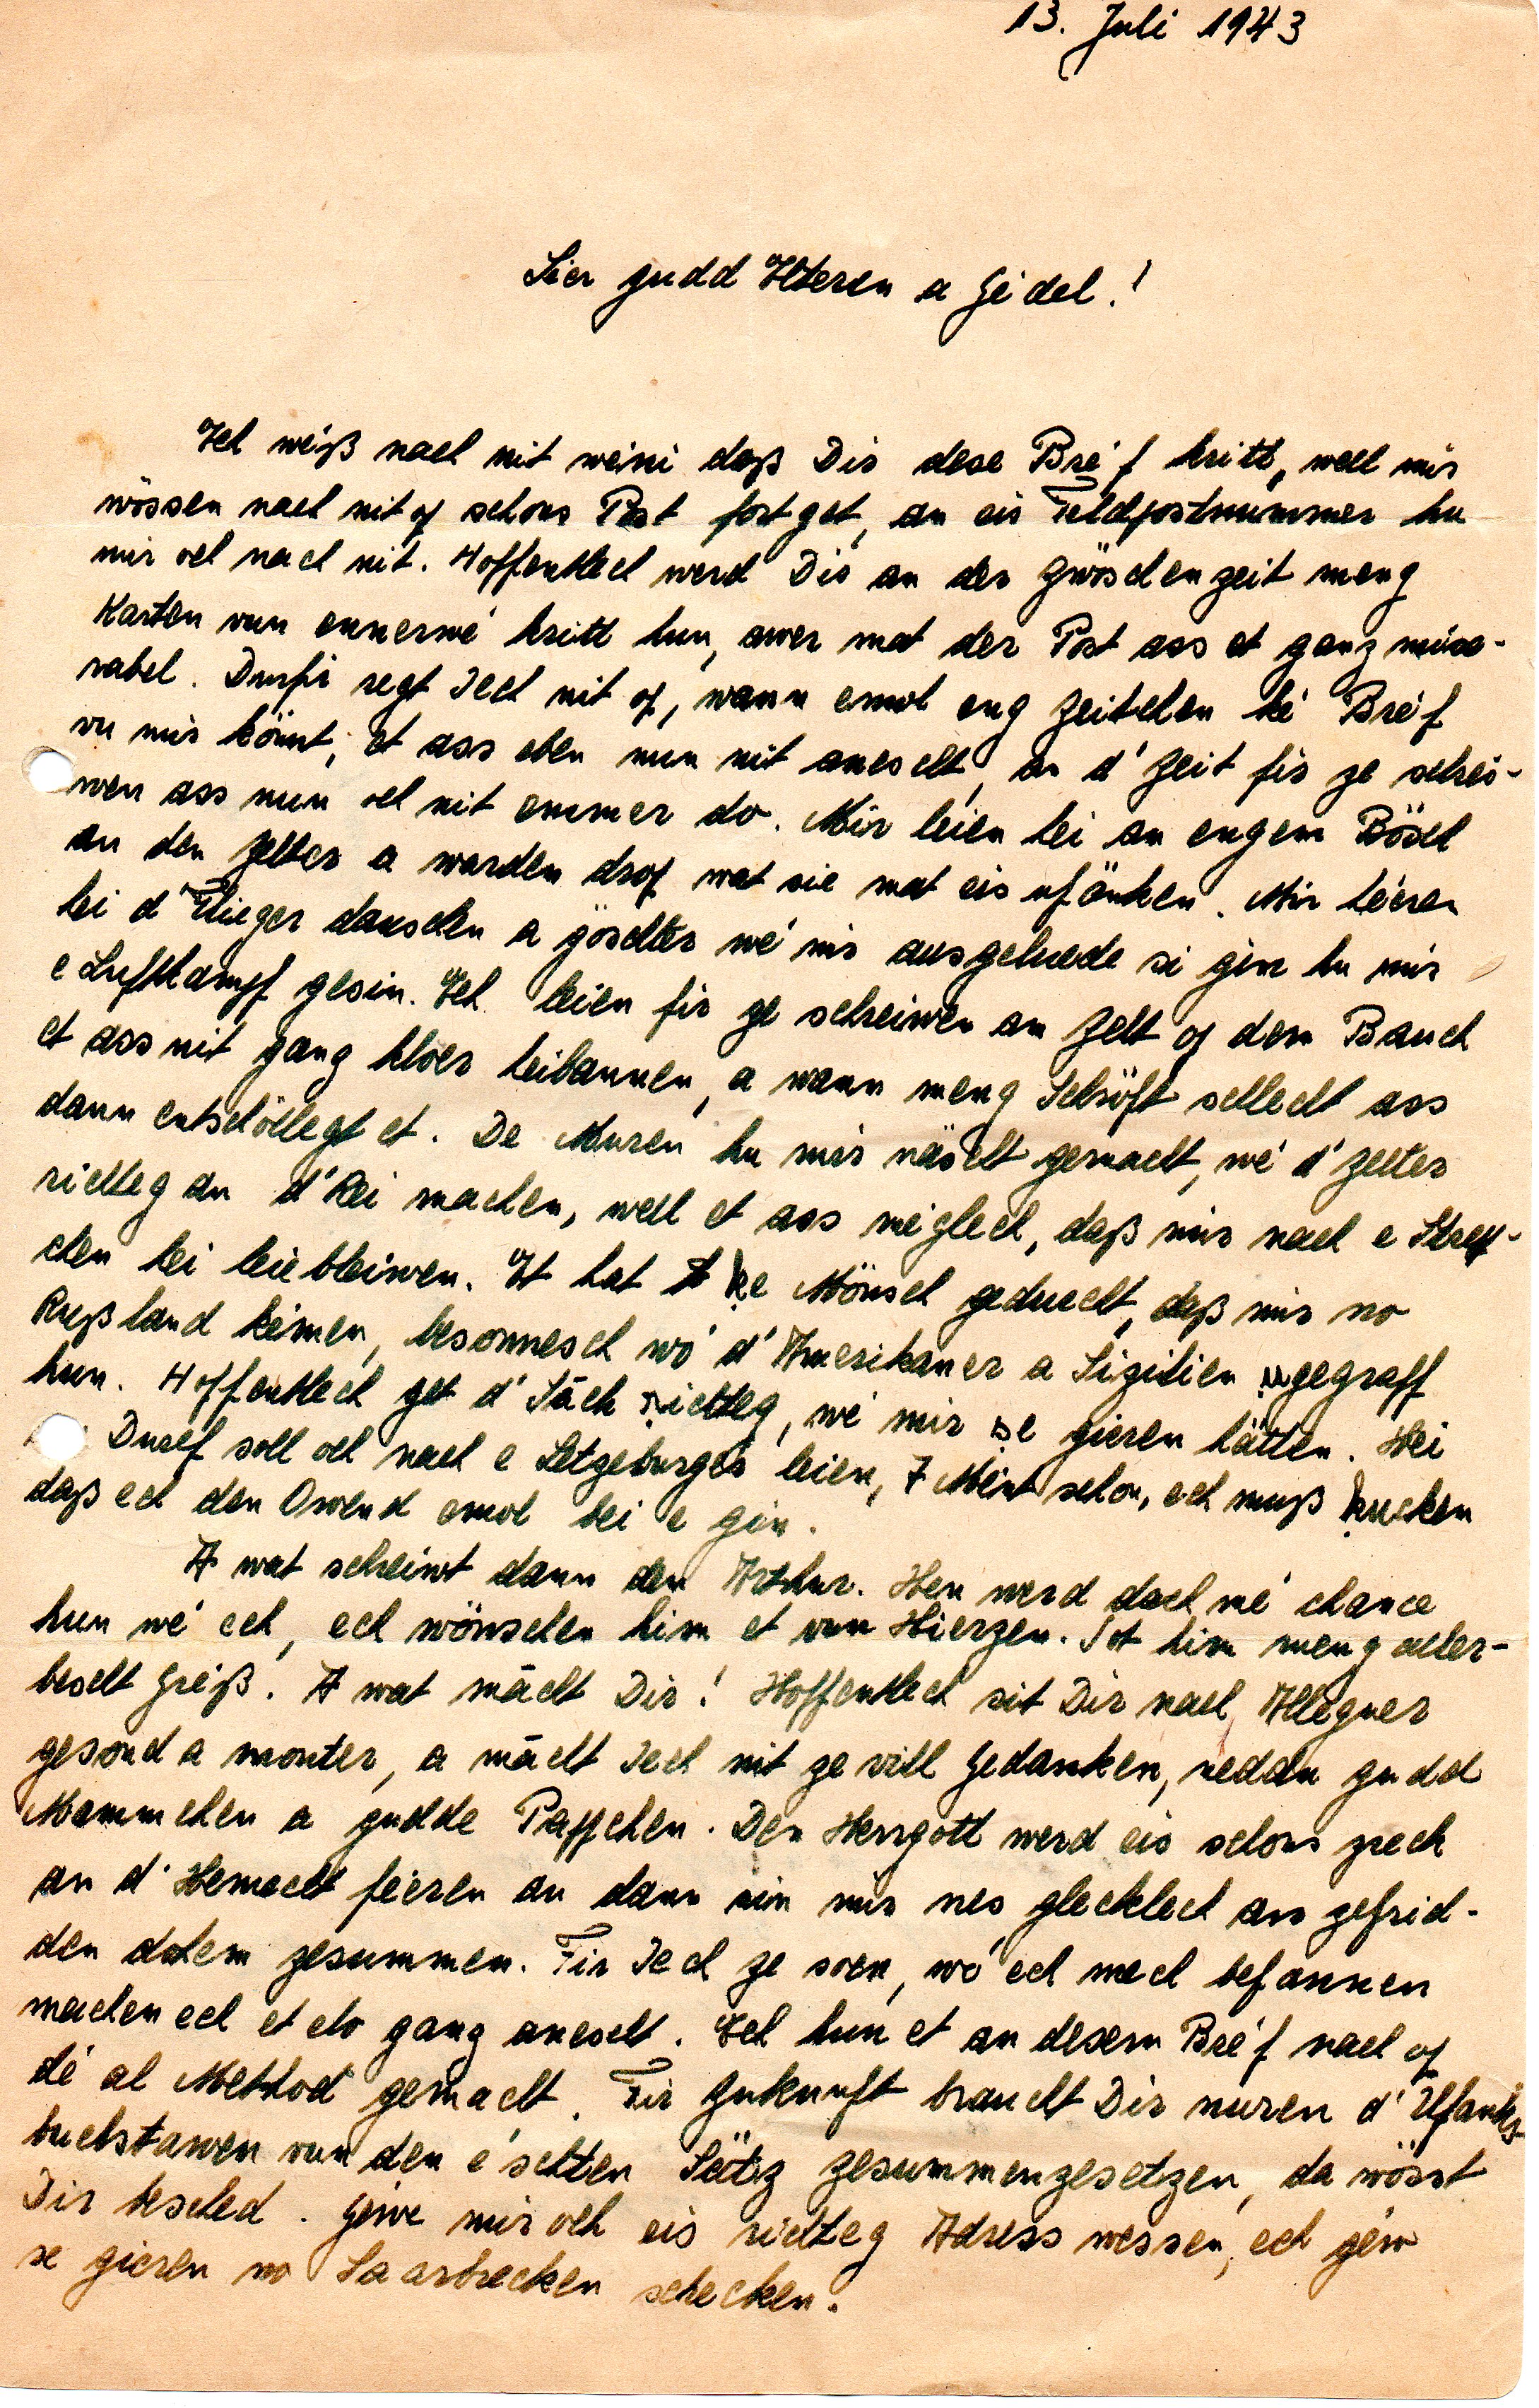 13. Juli 1943
Léer gudd Elteren a Geidel!
Ech weiß nach nit wéini daß Dir dese Bréf kritt, well mir
wössen nach nit of schons Post fort get, an eis Feldpostnummer hu
mir och nach nit. Hoffentlech werd Dir an der Zwöschenzeit meng
Karten vun ennerwé kritt hun, awer mat der Post ass et ganz mise-
rabel. Durfir regt Iech nit of, wann emol eng Zeitchen ké Bréf
vu mir könnt, et ass eben nun nit anescht, an d' Zeit fir ze schrei-
wen ass nun och nit emmer do. Mir leien hei an engem Bösch
an den Zelter a warden drof wat sie mat eis ufänken. Mir héeren
hei d' Flieger dauschen a göschter wé mir ausgeluede si gin hu mir
e Luftkampf gesin. Ech leien fir ze schreiwen am Zelt of dem Bauch
et ass nit ganz kloer heibannen, a wann meng Schröft schlecht ass
dann entschöllegt et. De Muren hu mir näscht gemacht, wé d' Zelter
richteg an d' Rei machen, well et ass méglech, daß mir nach e Streif-
chen hei leie bleiwen. Et hat ke Mönsch geduecht, daß mir no
Rußland kéimen, besonnesch wo' d' Amerikaner a Sizilien ugegraff
hun. Hoffentlech get d' Sāch richteg, wé mir se gieren hätten. Hei
Duerf soll och nach e Letzeburger leien, 7 Mént schon, ech muß kucken
daß ech den Owend emol bei e gin.
A wat schreiwt dann den Arthur. Hen werd dach mé chance
hun wé ech, ech wönschen him et vun Hierzen. Sot him meng aller-
bescht Greiß. A wat mācht Dir! Hoffentlech sit Dir nach Alleguer
gesond a monter, a mācht Iech nit ze vill Gedanken, neddu gudd
Mammchen a gudde Pappchen. Den Herrgott werd eis schons zreck
an d' Hemecht féieren an dann sin mir nes glecklech an zefrid-
den dohem zesummen. Fir Iech ze soen, wo' ech mech befannen
machen ech et elo ganz anescht. Ech hun et an desem Bréf nach of
dé al Method gemacht. Fir Zukunft braucht Dir nuren d' Ufanks-
buchstawen vun den éschten Sätz zesummenzesetzen, da wösst
Dir bescheed. Gewe mir och eis richteg Adress wessen, ech géw
se gieren no Saarbrecken schecken.